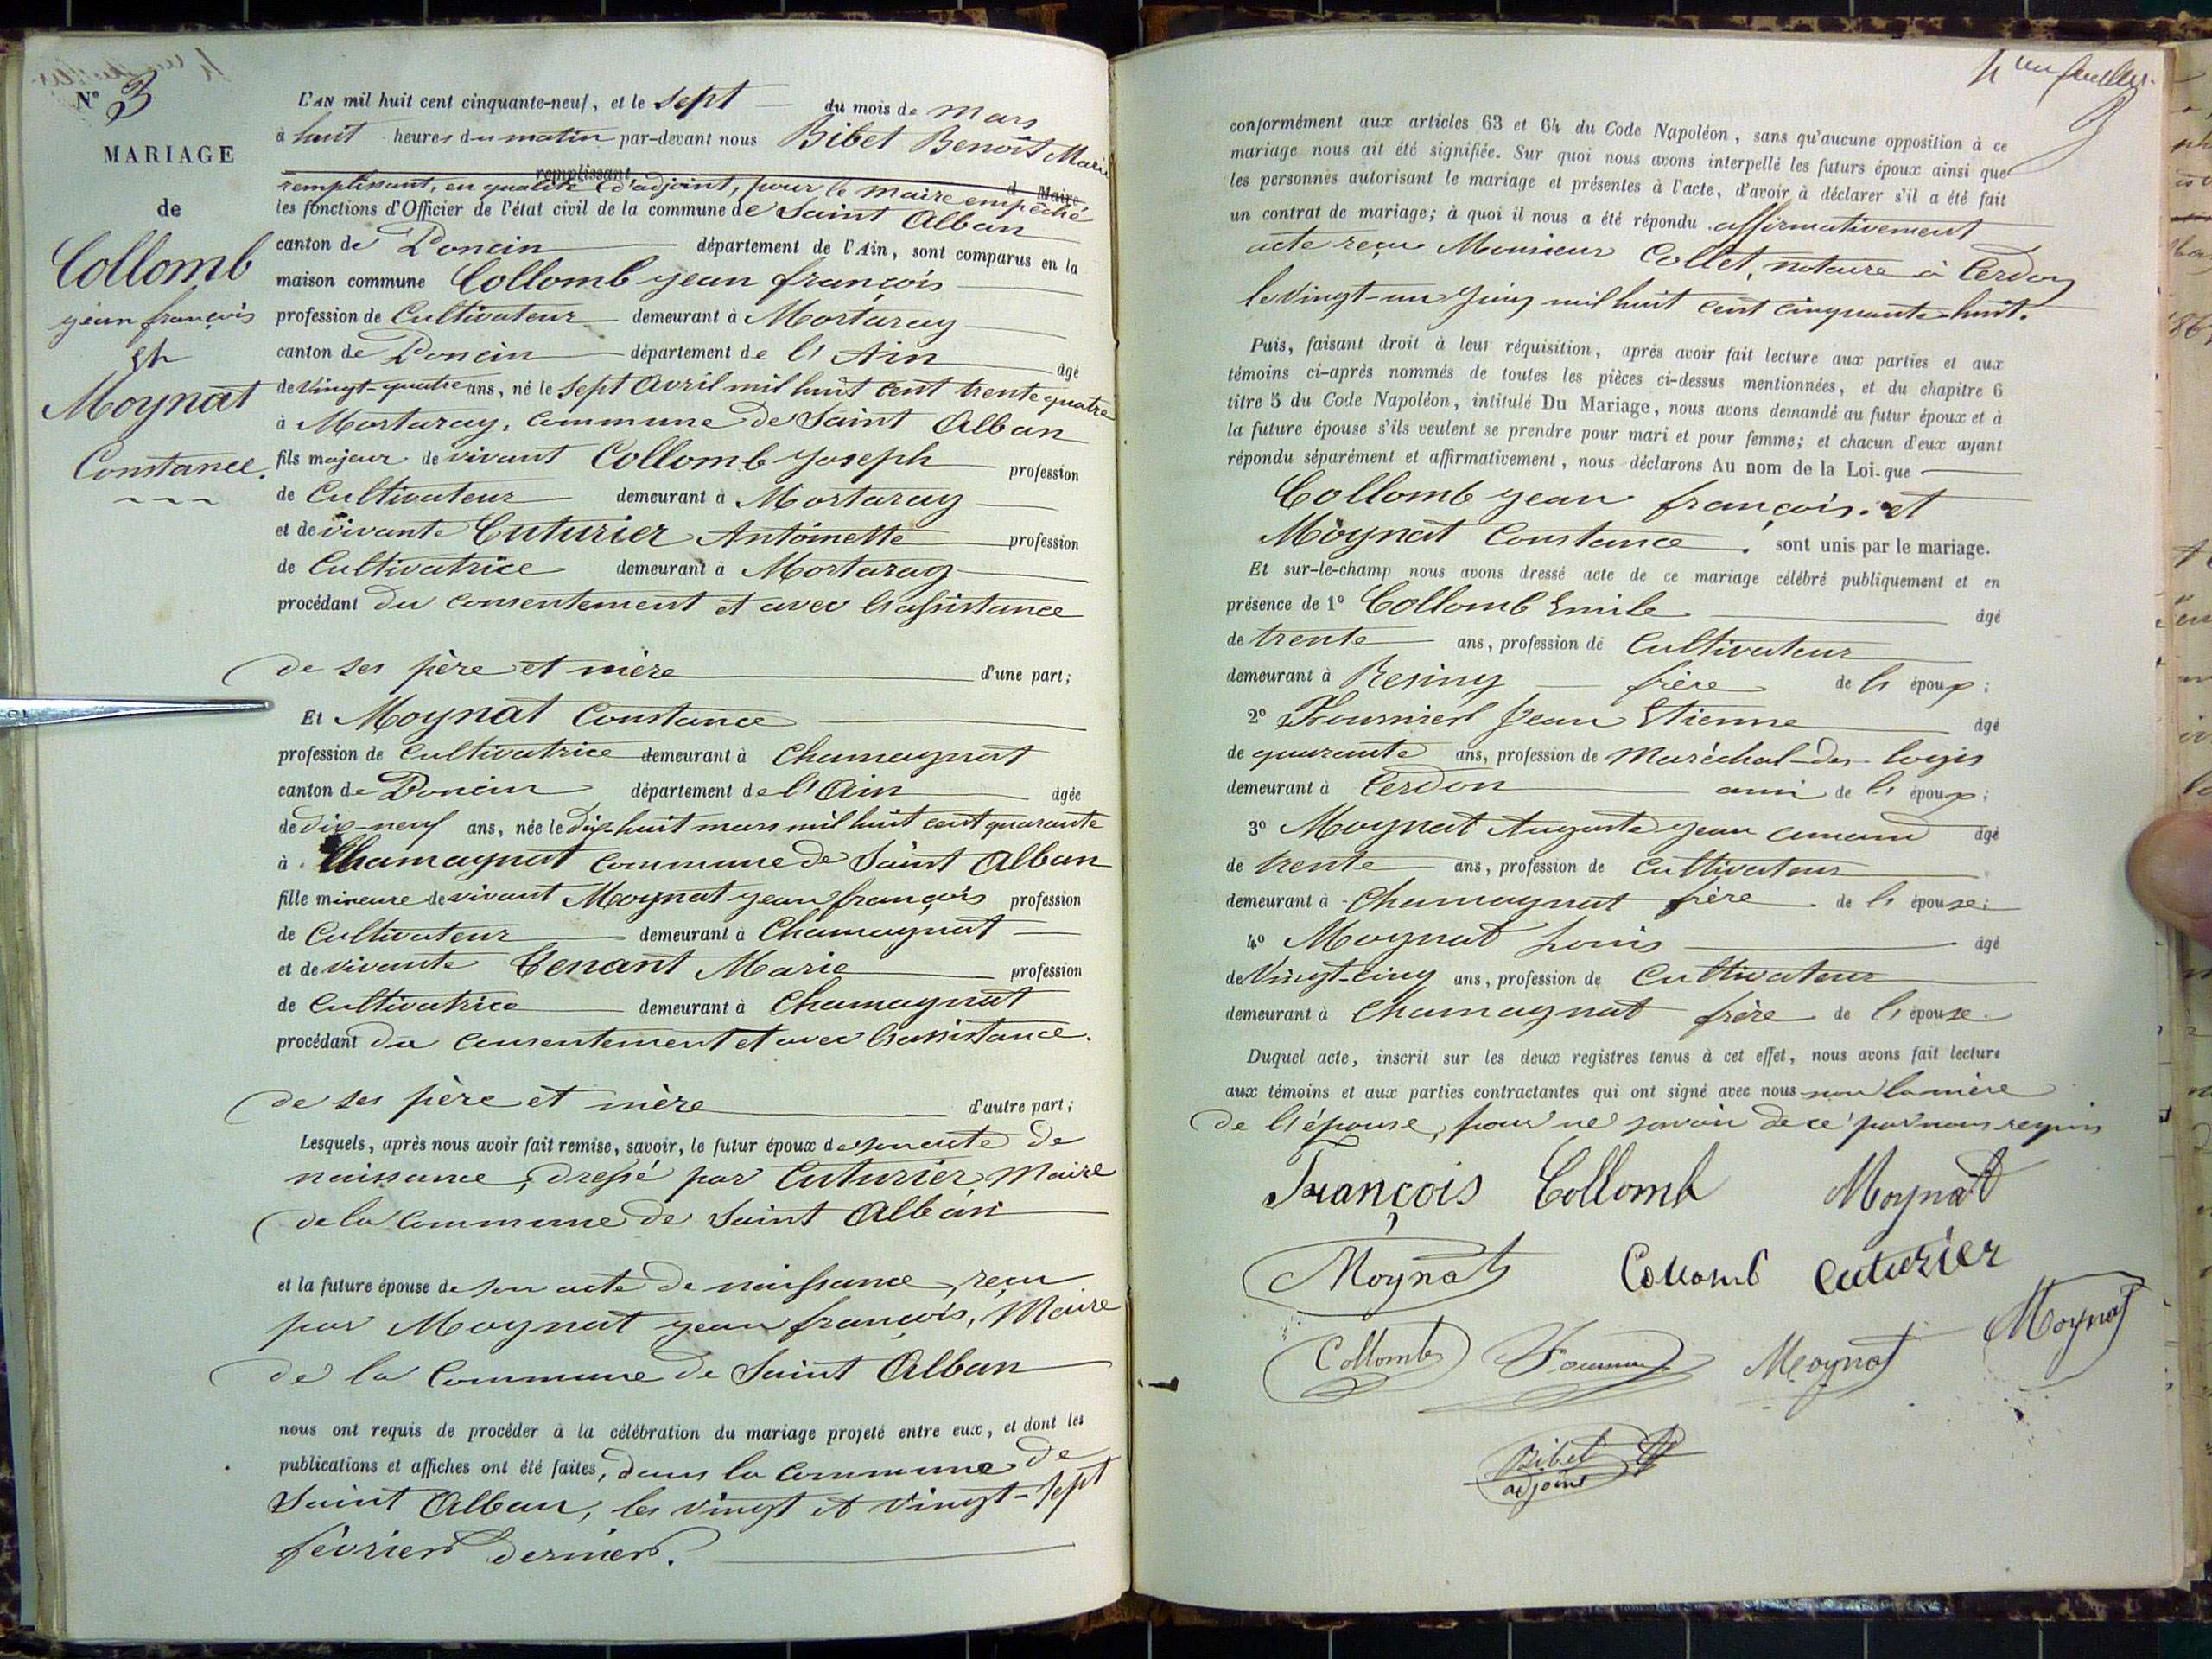 N° 3
MARIAGE
de
Collomb
jean françois
et
Moynat
Constance.
L'AN mil huit cent cinquante-neuf, et le sept du mois de mars
à huit heures du matin par-devant nous Bibet Benoît Marie
remplissant d Maire
remplissant, en qualité d'adjoint, pour le maire empêché
les fonctions d'Officier de l'état civil de la commune de Saint Alban
canton de Poncin département de l'Ain, sont comparus en la
maison commune Collomb jean françois
profession de Cultivateur demeurant à Mortaray
canton de Poncin département de l'Ain âgé
de vingt-quatre ans, né le sept avril mil huit cent trente quatre
à Mortaray, commune de Saint Alban
fils majeur de vivant Collomb joseph profession
de Cultivateur demeurant à Mortaray
et de vivante Cuturier Antoinette profession
de Cultivatrice demeurant à Mortaray
procédant du consentement et avec l'assistance
de ses père et mère d'une part;
Et Moynat Constance
profession de Cultivatrice demeurant à Chamagnat
canton de Poncin département de l'Ain âgée
de dix-neuf ans, née le dix-huit mars mil huit cent quarante
à Chamagnat commune de Saint Alban
fille mineure de vivant Moynat jean françois profession
de Cultivateur demeurant à Chamagnat
et de vivante Tenant Marie profession
de Cultivatrice demeurant à Chamagnat
procédant du consentement et avec l'assistance.
de ses père et mère d'autre part;
Lesquels, après nous avoir fait remise, savoir, le futur époux de son acte de
naissance, dressé par Cuturier, Maire
de la Commune de Saint Alban
et la future épouse de son acte de naissance, reçu
par Moynat jean françois, Maire
de la Commune de Saint Alban
nous ont requis de procéder à la célébration du mariage projeté entre eux, et dont les
publications et affiches ont été faites, dans la commune de
Saint Alban, les vingt et vingt-sept
février dernier.
feuillet
conformément aux articles 63 et 64 du Code Napoléon, sans qu'aucune opposition à ce
mariage nous ait été signifiée. Sur quoi nous avons interpellé les futurs époux ainsi que
les personnes autorisant le mariage et présentes à l'acte, d'avoir à déclarer s'il a été fait
un contrat de mariage; à quoi il nous a été répondu affirmativement
acte reçu Monsieur Collet, notaire à Cerdon
le vingt-un juin mil huit cent cinquante-huit.
Puis, faisant droit à leur réquisition, après avoir fait lecture aux parties et aux
témoins ci-après nommés de toutes les pièces ci-dessus mentionnées, et du chapitre 6
titre 5 du Code Napoléon, intitulé Du Mariage, nous avons demandé au futur époux et à
la future épouse s'ils veulent se prendre pour mari et pour femme; et chacun d'eux ayant
répondu séparément et affirmativement, nous déclarons Au nom de la Loi que
Collomb jean françois. et
Moynat Constance. sont unis par le mariage.
Et sur-le-champ nous avons dressé acte de ce mariage célébré publiquement et en
présence de 1° Collomb Emile âgé
de trente ans, profession de Cultivateur
demeurant à Resiny frère de l'époux;
2° Fournier Jean Etienne âgé
de quarante ans, profession de Maréchal-des-logis
demeurant à Cerdon ami de l'époux;
3° Moynat Auguste jean amand âgé
de trente ans, profession de Cultivateur
demeurant à Chamagnat frère de l'épouse;
4° Moynat Louis âgé
de Vingt-cinq ans, profession de Cultivateur
demeurant à Chamagnat frère de l'épouse.
Duquel acte, inscrit sur les deux registres tenus à cet effet, nous avons fait lecture
aux témoins et aux parties contractantes qui ont signé avec nous non la mère
de l'épouse, pour ne savoir de ce par nous requis
François Collomb Moynat
Moynat Collomb Cuturier
Collomb Fournier Moynat Moynat
Bibet
adjoint